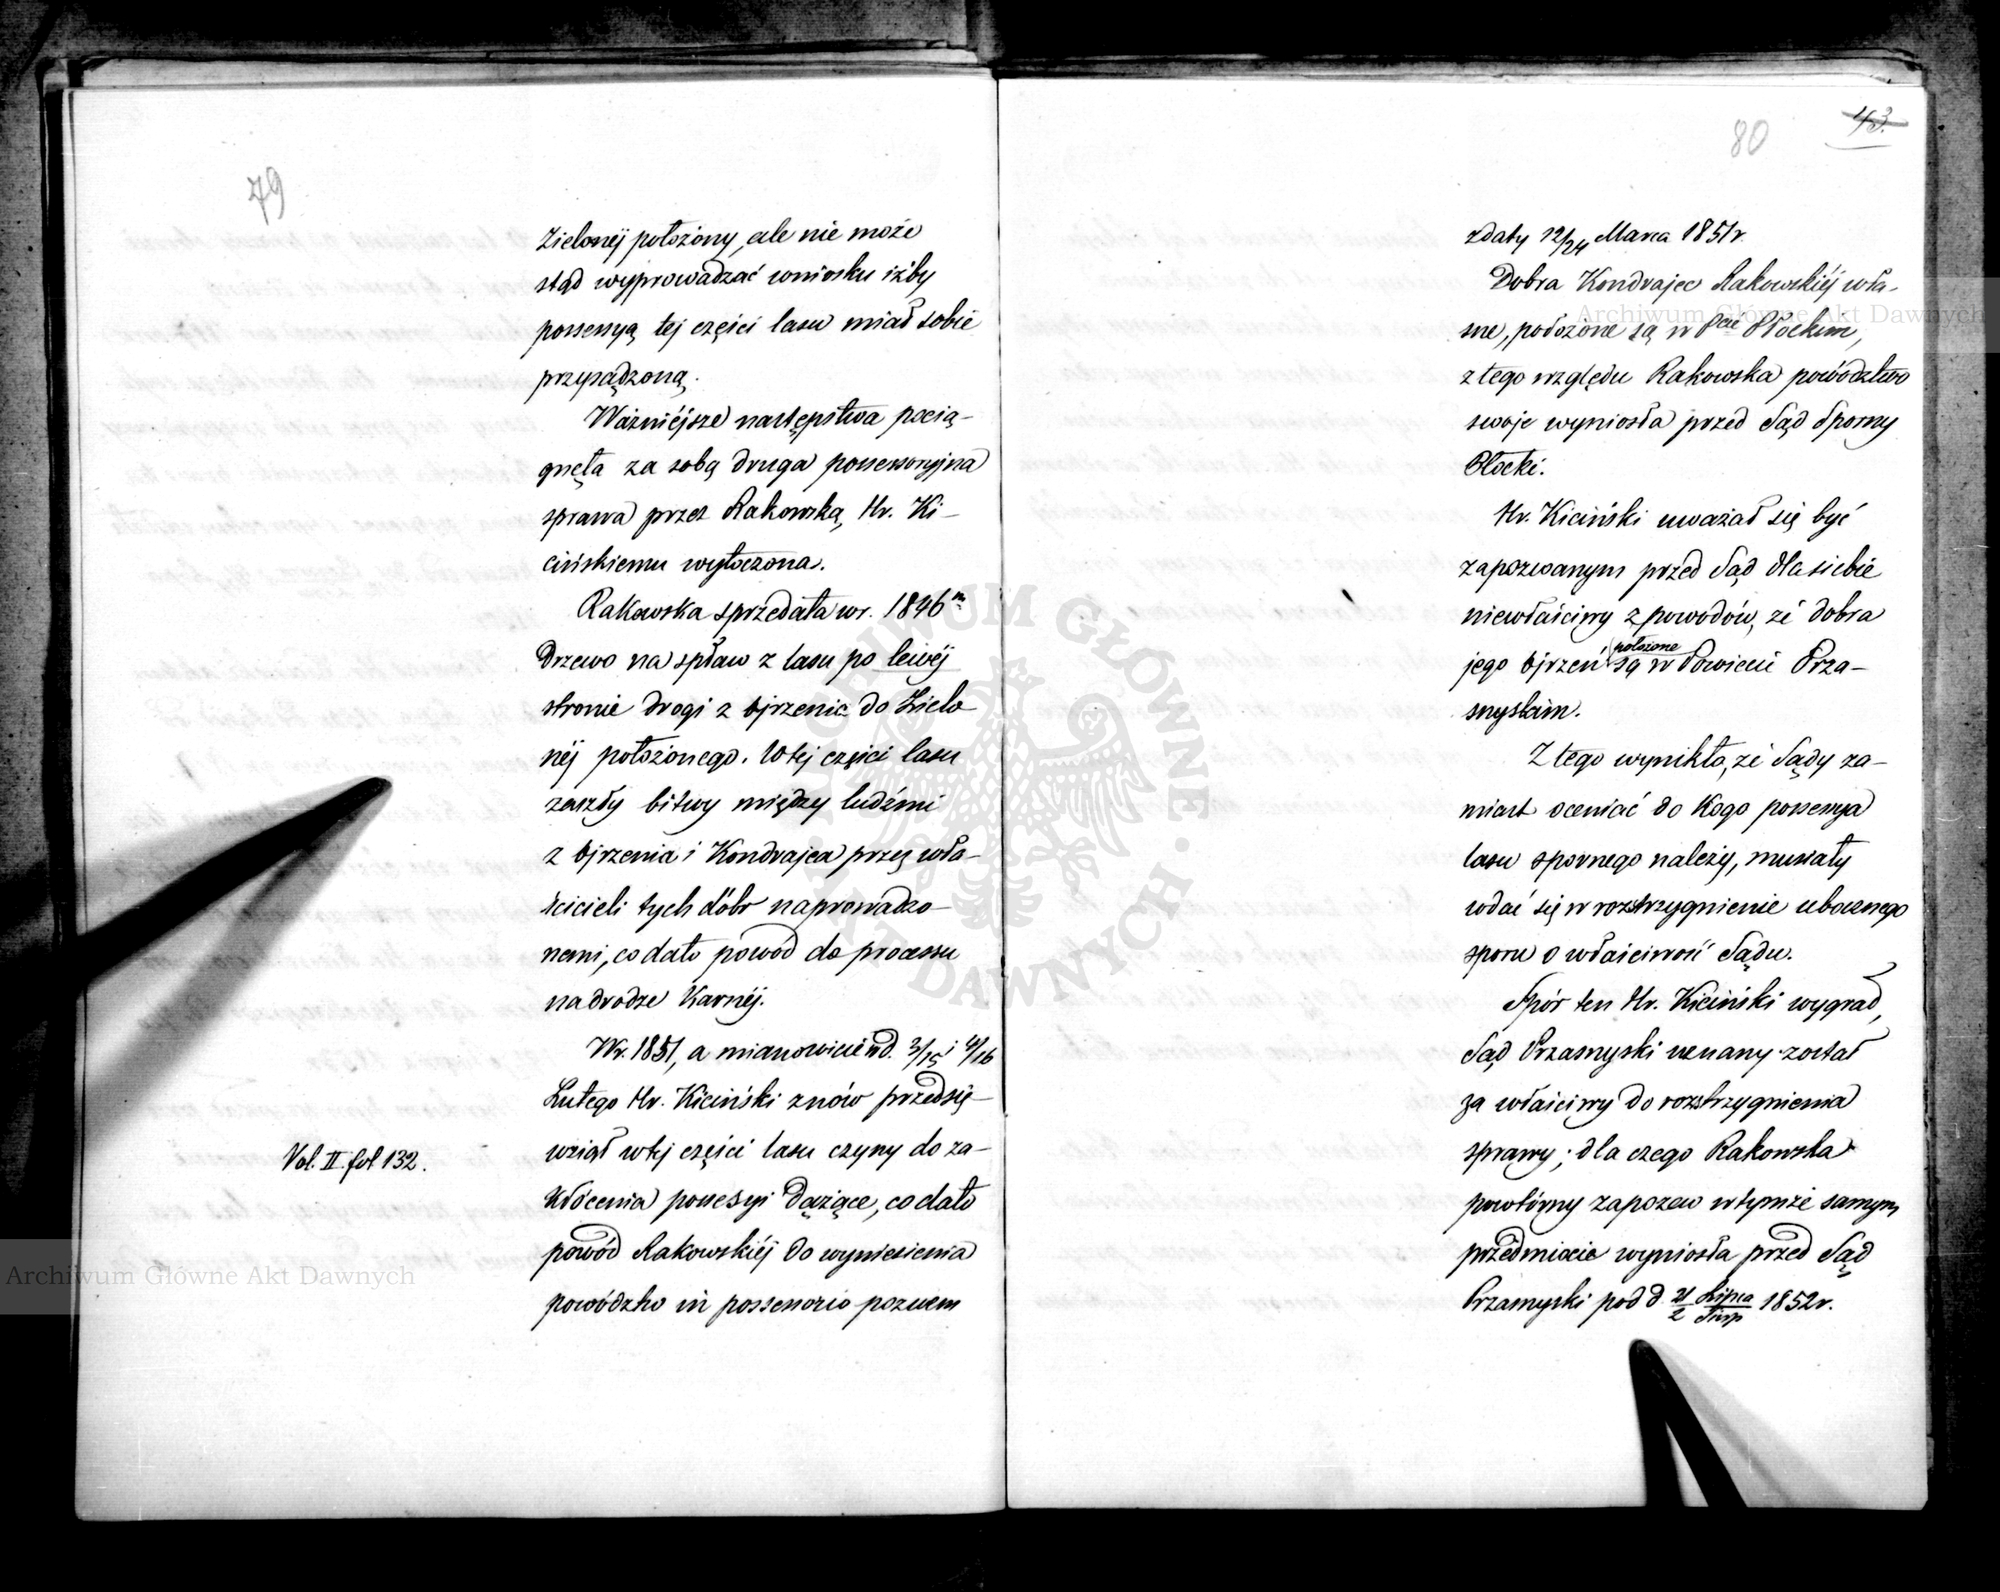 79
Zielonéj położony, ale nie może
stąd wyprowadzać wniosku iżby
possessyą tej części lasu miał sobie
przysądzoną.
Ważniéjsze następstwa pocią-
gnęła za sobą druga possessoryjna
sprawa przez Rakowską, Hr. Ki-
cińskiemu wytoczona.
Rakowska sprzedała w r. 1846
Drzewo na spław z lasu po lewéj
stronie drogi z Ojrzenia do Zielo
néj położonego. W tej części lasu
zaszły bitwy między ludźmi
z Ojrzenia i Kondrajca przez wła-
ścicieli tych dóbr naprowadzo-
nemi, co dało powód do processu
na drodze Karnéj.
W r. 1851, a mianowicie pod d. 3/15 i 4/16
Lutego Hr. Kiciński znów przedsię-
wziął w tej części lasu czyny do za-
Vol. II fol 132.
kłócenia possesyi dążące, co dało
powód Rakowskiéj do wyniesienia
powództwo in possessorio pozwem
80
43.
z daty 12/24 Marca 1851 r.
Dobra Kondrajec Rakowskiéj wła-
sne, położone są w Pcie Płockim,
z tego względu Rakowska powództwo
swoje wyniosła przed Sąd Sporny
Płocki.
Hr. Kiciński uważał się być
zapozwanym przed Sąd dla siebie
niewłaściwy z powodów, że dobra
jego Ojrzeń położone są w Powiecie Prza-
snyskim.
Z tego wynikło, że Sądy za-
miast oceniać do Kogo possesyja
lasu spornego należy, musiały
wdać się w rozstrzygnienie ubocznego
sporu o właściwość Sądu.
Spór ten Hr. Kiciński wygrał,
Sąd Przasnyski uznany został
za właściwy do rozstrzygnienia
sprawy; dla czego Rakowska
powtórny zapozew w tymże samym
przedmiocie wyniosła przed Sąd
Przasnyski pod d. 21/2 Lipca/Sierp 1852 r.
Archiwum Główne Akt Dawnych
Archiwum Główne Akt Dawnych
ARCHIWUM GŁÓWNE AKT DAWNYCH